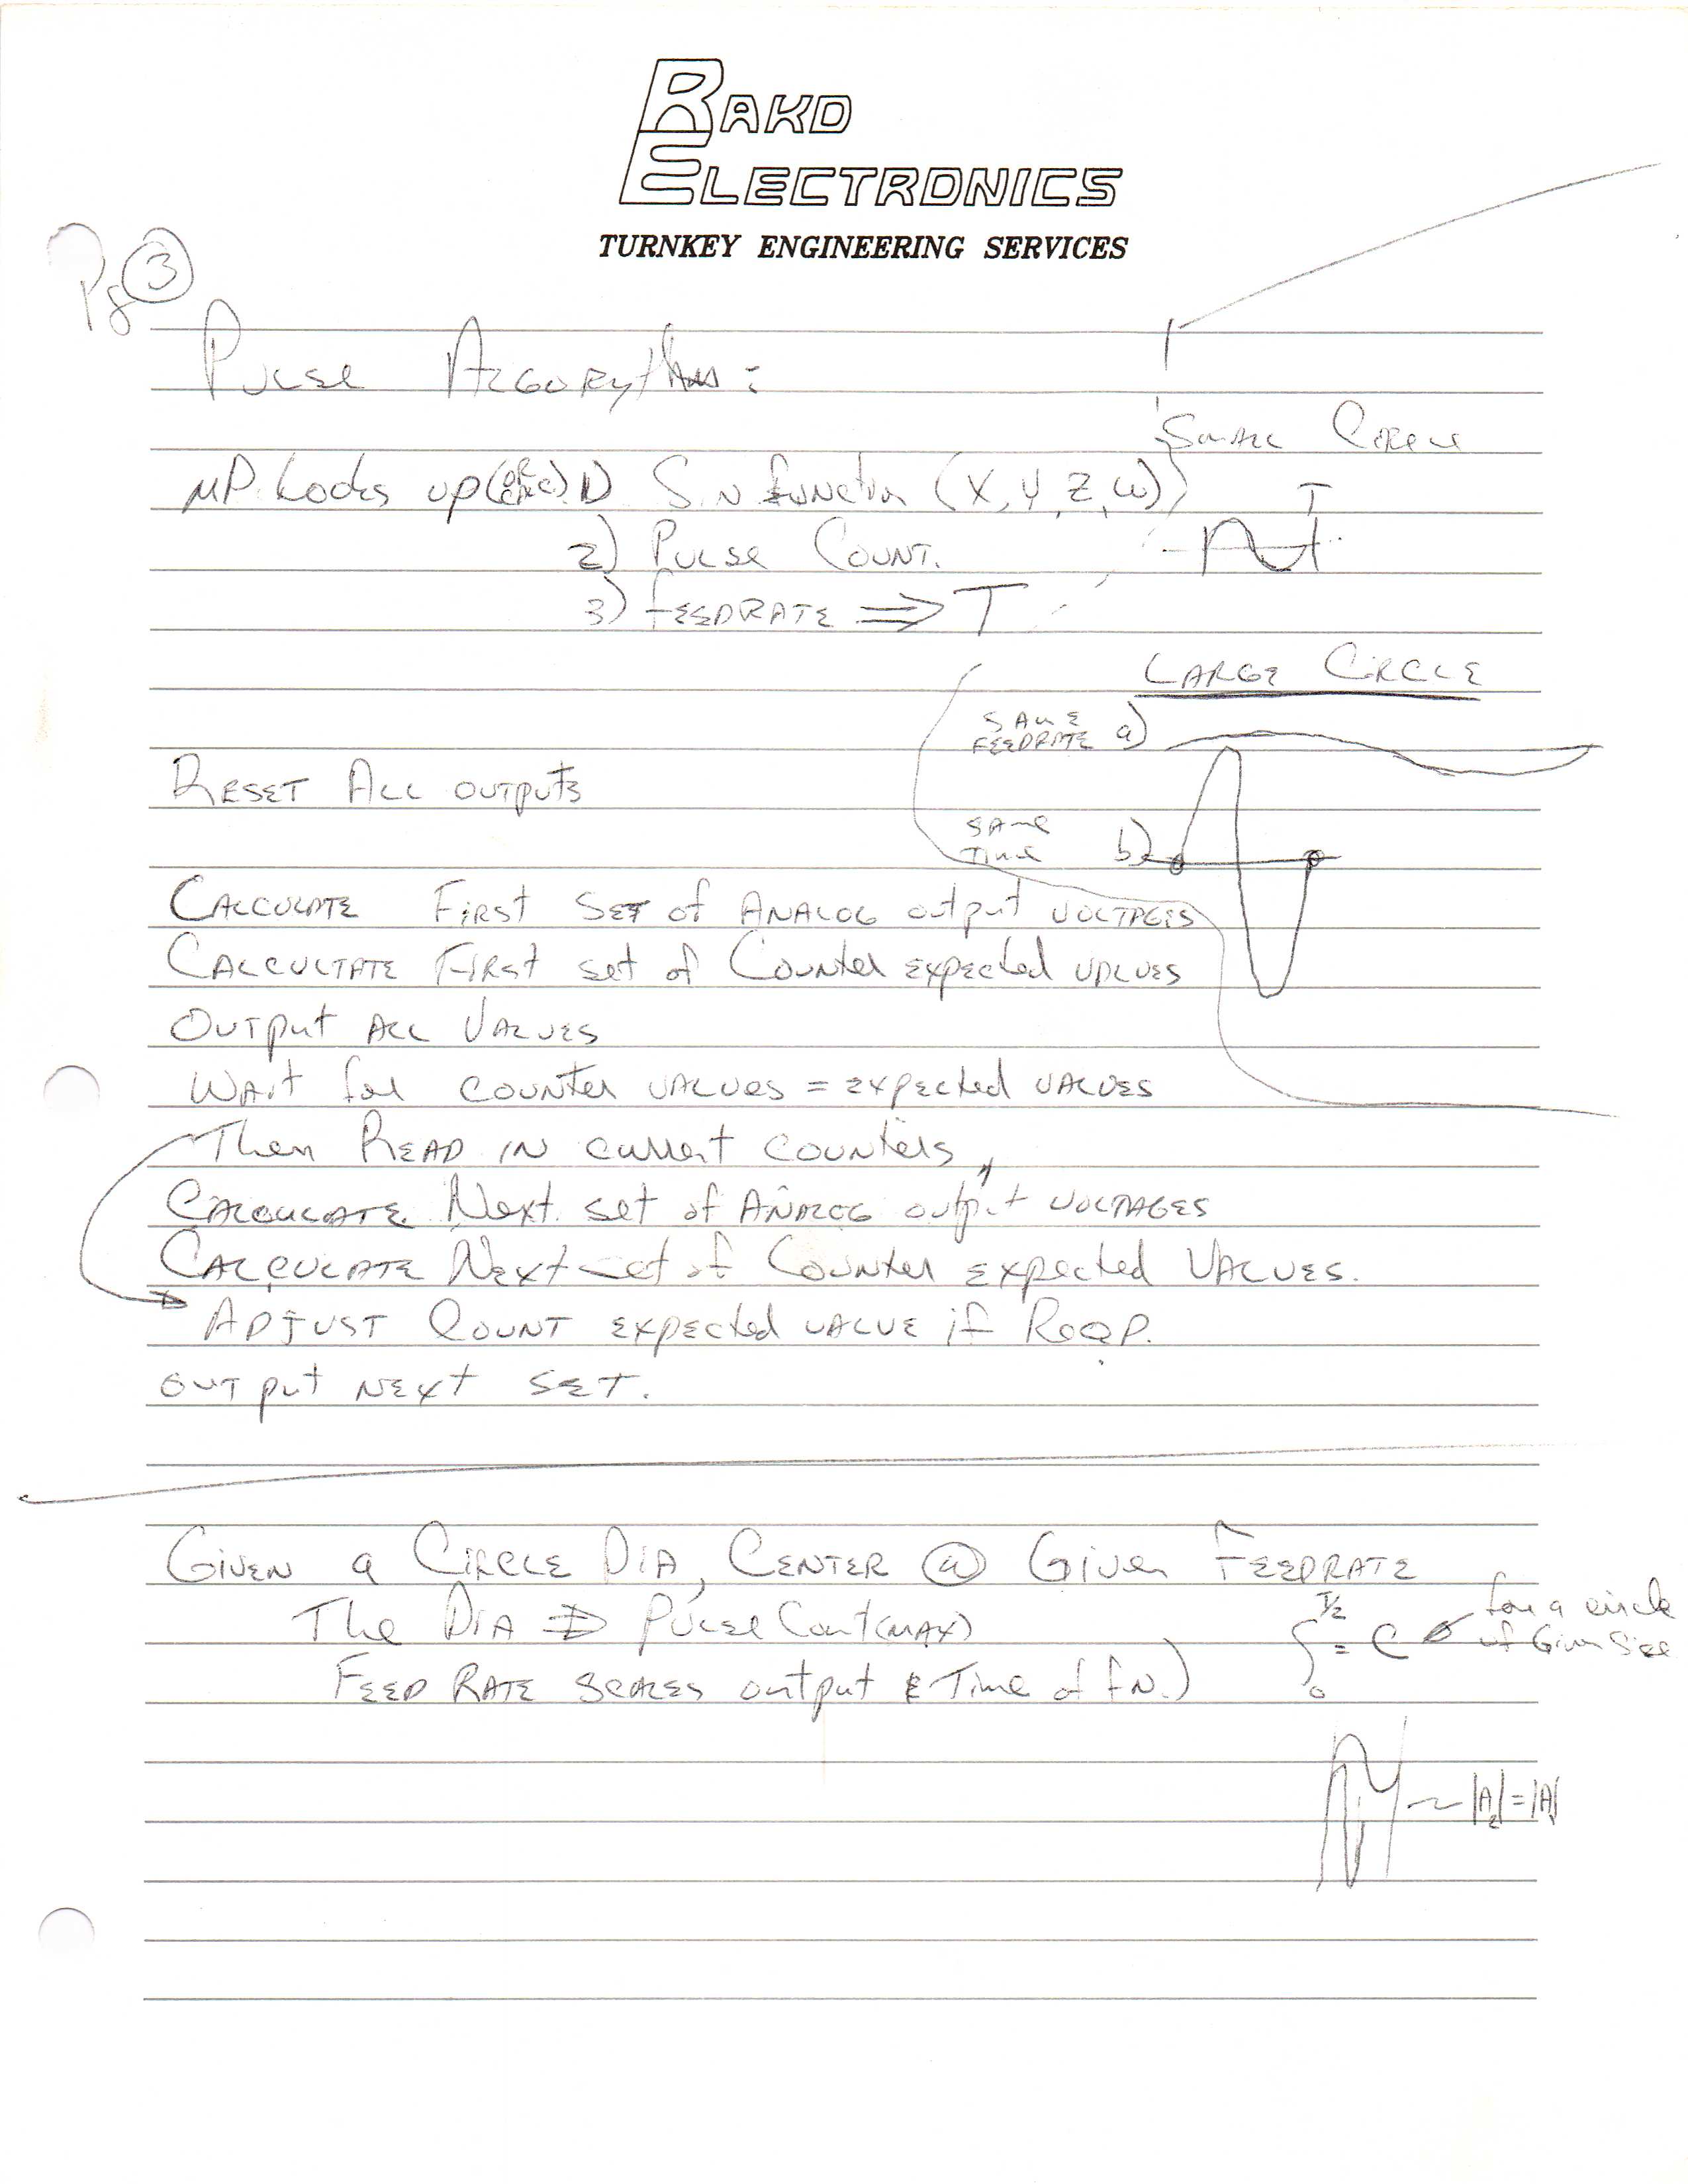 RAKO
ELECTRONICS
TURNKEY ENGINEERING SERVICES
Pg 3
Pulse Algorythm:
Small Circle
µP. Looks up (or calc) 1) Sin function (X, Y, Z, W)
T
2) Pulse Count.
3) FEEDRATE ⇒ T
LARGE CIRCLE
SAME FEEDRATE a)
RESET ALL OUTPUTS
SAME TIME b)
CALCULATE FIRST SET of ANALOG output VOLTAGES
CALCULTATE FIRST set of Counter expected VALUES
OUTPUT ALL VALUES
Wait for counter VALUES = expected VALUES
Then READ IN current counters,
CALCULATE Next set of ANALOG output VOLTAGES
CALCULATE Next set of Counter expected VALUES.
ADJUST COUNT expected VALUE if REQD.
OUTPUT NEXT SET.
GIVEN a CIRCLE DIA, CENTER @ Given FEEDRATE
The DIA ⇒ Pulse Count (MAX)
∫ T/2 0 = C for a circle of Given Size
FEED RATE SCALES output & Time of fn.)
~ |A₂| = |A|